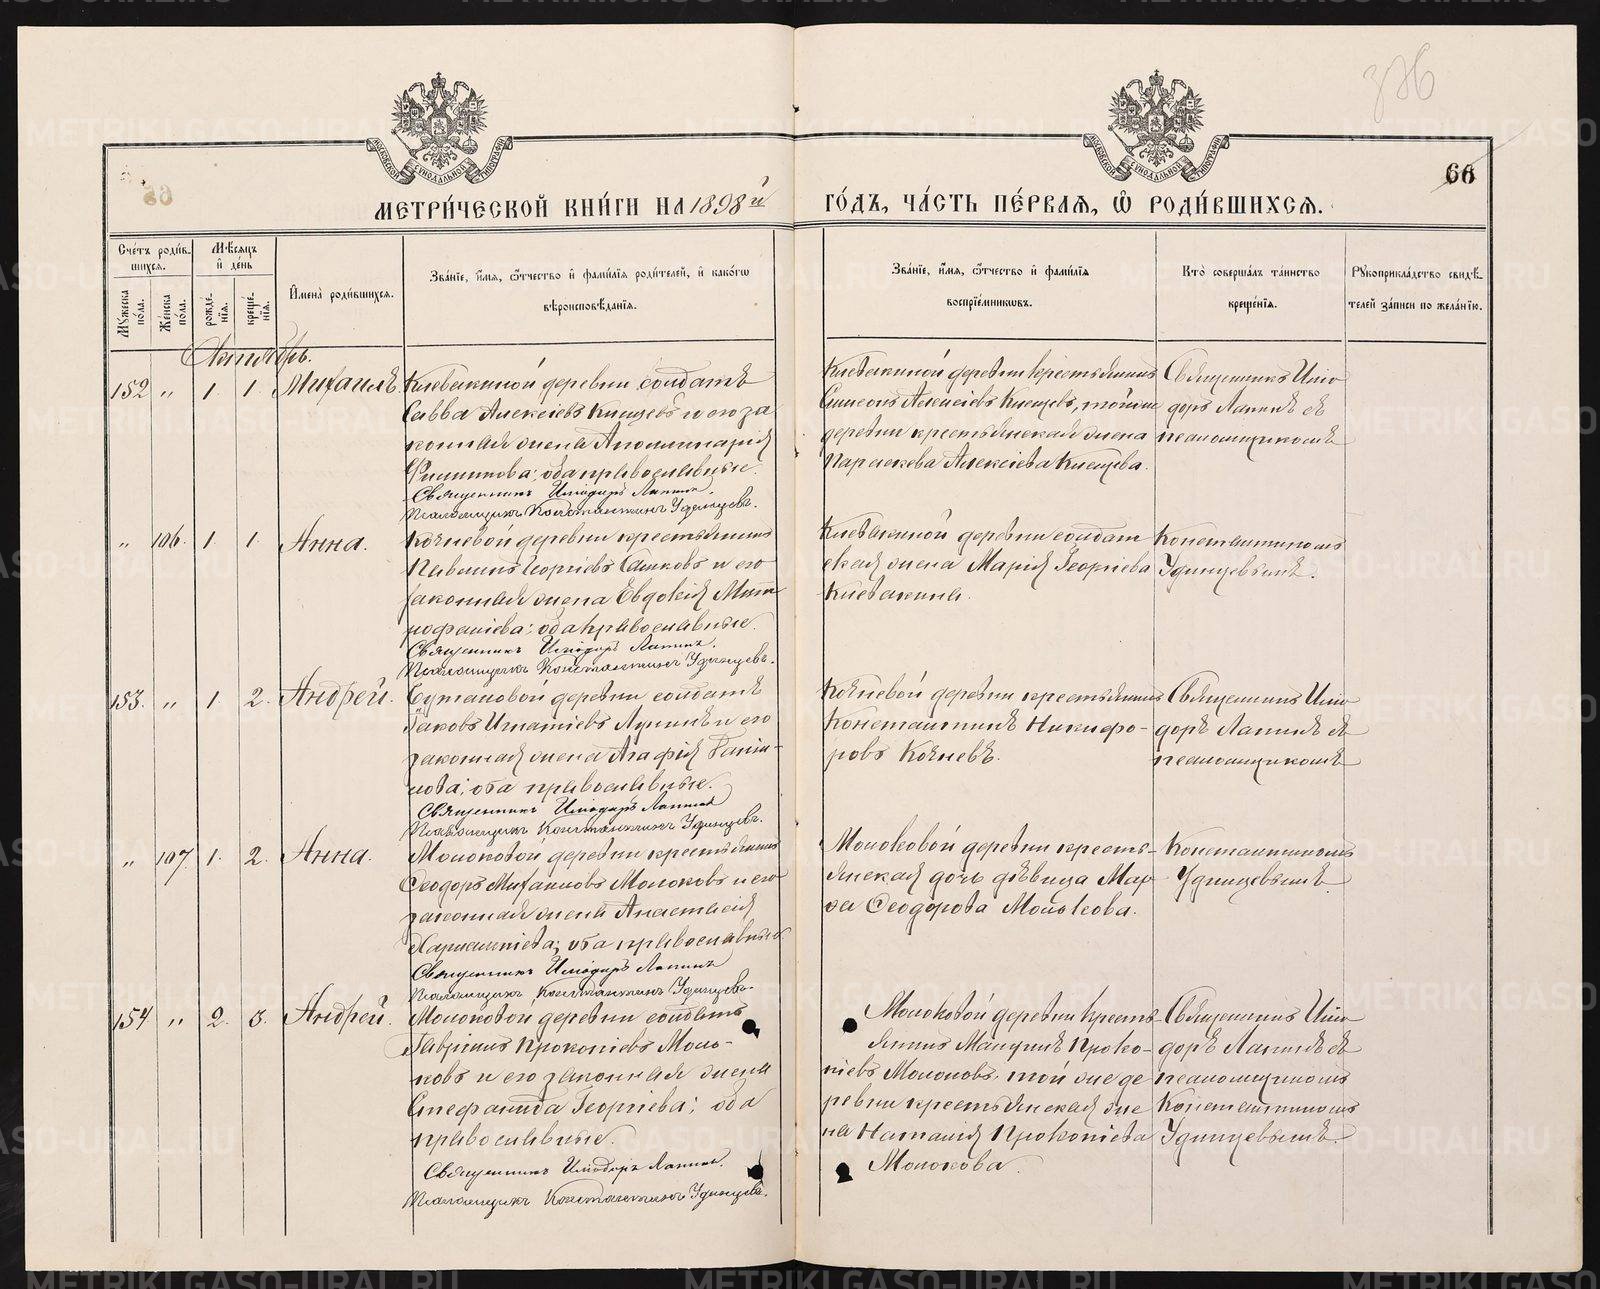 376
66
МЕТРИ́ЧЕСКОЙ КНИ́ГИ НА 1898й
ГО́ДЪ, ЧА́СТЬ ПЕ́РВАЯ, Ѡ҆ РОДИ́ВШИХСЯ.
Сче́тъ роди́вшихся.
Му́жеска по́ла.
Же́нска по́ла.
Мѣ́сяцъ и҆ де́нь
рожде́нїя.
креще́нїя.
И҆мена̀ роди́вшихся.
Зва́нїе, и҆́мя, ѻ҆́тчество и҆ фами́лїя роди́телей, и҆ како́гѡ
вѣроисповѣ́данїя.
Зва́нїе, и҆́мя, ѻ҆́тчество и҆ фами́лїя
воспрїе́мникѡвъ.
Кто̀ соверша́лъ та́инство
креще́нїя.
Рꙋкоприкла́дство свидѣ́телей за́писи по жела́нїю.
Октябрь.
152 " 1. 1. Михаилъ
деревни солдатъ
Савва Алексіевъ Кнещевъ и его за
конная жена Аполлинарія
Филиппова; оба православные.
Священникъ Исидоръ Лапинъ.
Псаломщикъ Константинъ Удинцевъ.
деревни крестьянинъ
Симеонъ Алексіевъ Кнещевъ, той же
деревни крестьянская жена
Параскева Алексіева Кнещева.
Священникъ Иси
доръ Лапинъ съ
псаломщикомъ
" 106. 1. 1. Анна.
Кочневой деревни крестьянинъ
Георгіевъ и его
законная жена Евдокія Мит
рофаніева; оба православные.
Священникъ Исидоръ Лапинъ.
Псаломщикъ Константинъ Удинцевъ.
деревни солдат
ская жена Марія Георгіева
Константиномъ
Удинцевымъ.
153. " 1. 2. Андрей.
деревни солдатъ
Іаковъ Игнатіевъ и его
законная жена Агафія
оба православные.
Священникъ Исидоръ Лапинъ
Псаломщикъ Константинъ Удинцевъ.
Кочневой деревни крестьянинъ
Константинъ Никифо-
ровъ Кочневъ.
Священникъ Иси
доръ Лапинъ съ
псаломщикомъ
" 107. 1. 2. Анна.
Молоковой деревни крестьянинъ
Ѳеодоръ Михаиловъ Молоковъ и его
законная жена Анастасія
оба православные.
Священникъ Исидоръ Лапинъ
Псаломщикъ Константинъ Удинцевъ.
Молоковой деревни кресть-
янская дочь дѣвица Мар
Ѳеодорова Молокова.
Константиномъ
Удинцевымъ.
154. " 2. 3. Андрей.
Молоковой деревни солдатъ
Гавріилъ Прокопіевъ Моло-
ковъ и его законная жена
Стефанида Георгіева; оба
православные.
Священникъ Исидоръ Лапинъ.
Псаломщикъ Константинъ Удинцевъ.
Молоковой деревни кресть-
янинъ Мануилъ Проко-
піевъ Молоковъ, той же де
ревни крестьянская же
на Наталія Прокопіева
Молокова.
Священникъ Иси
доръ Лапинъ съ
псаломщикомъ
Константиномъ
Удинцевымъ.
METRIKI.GASO-URAL.RU